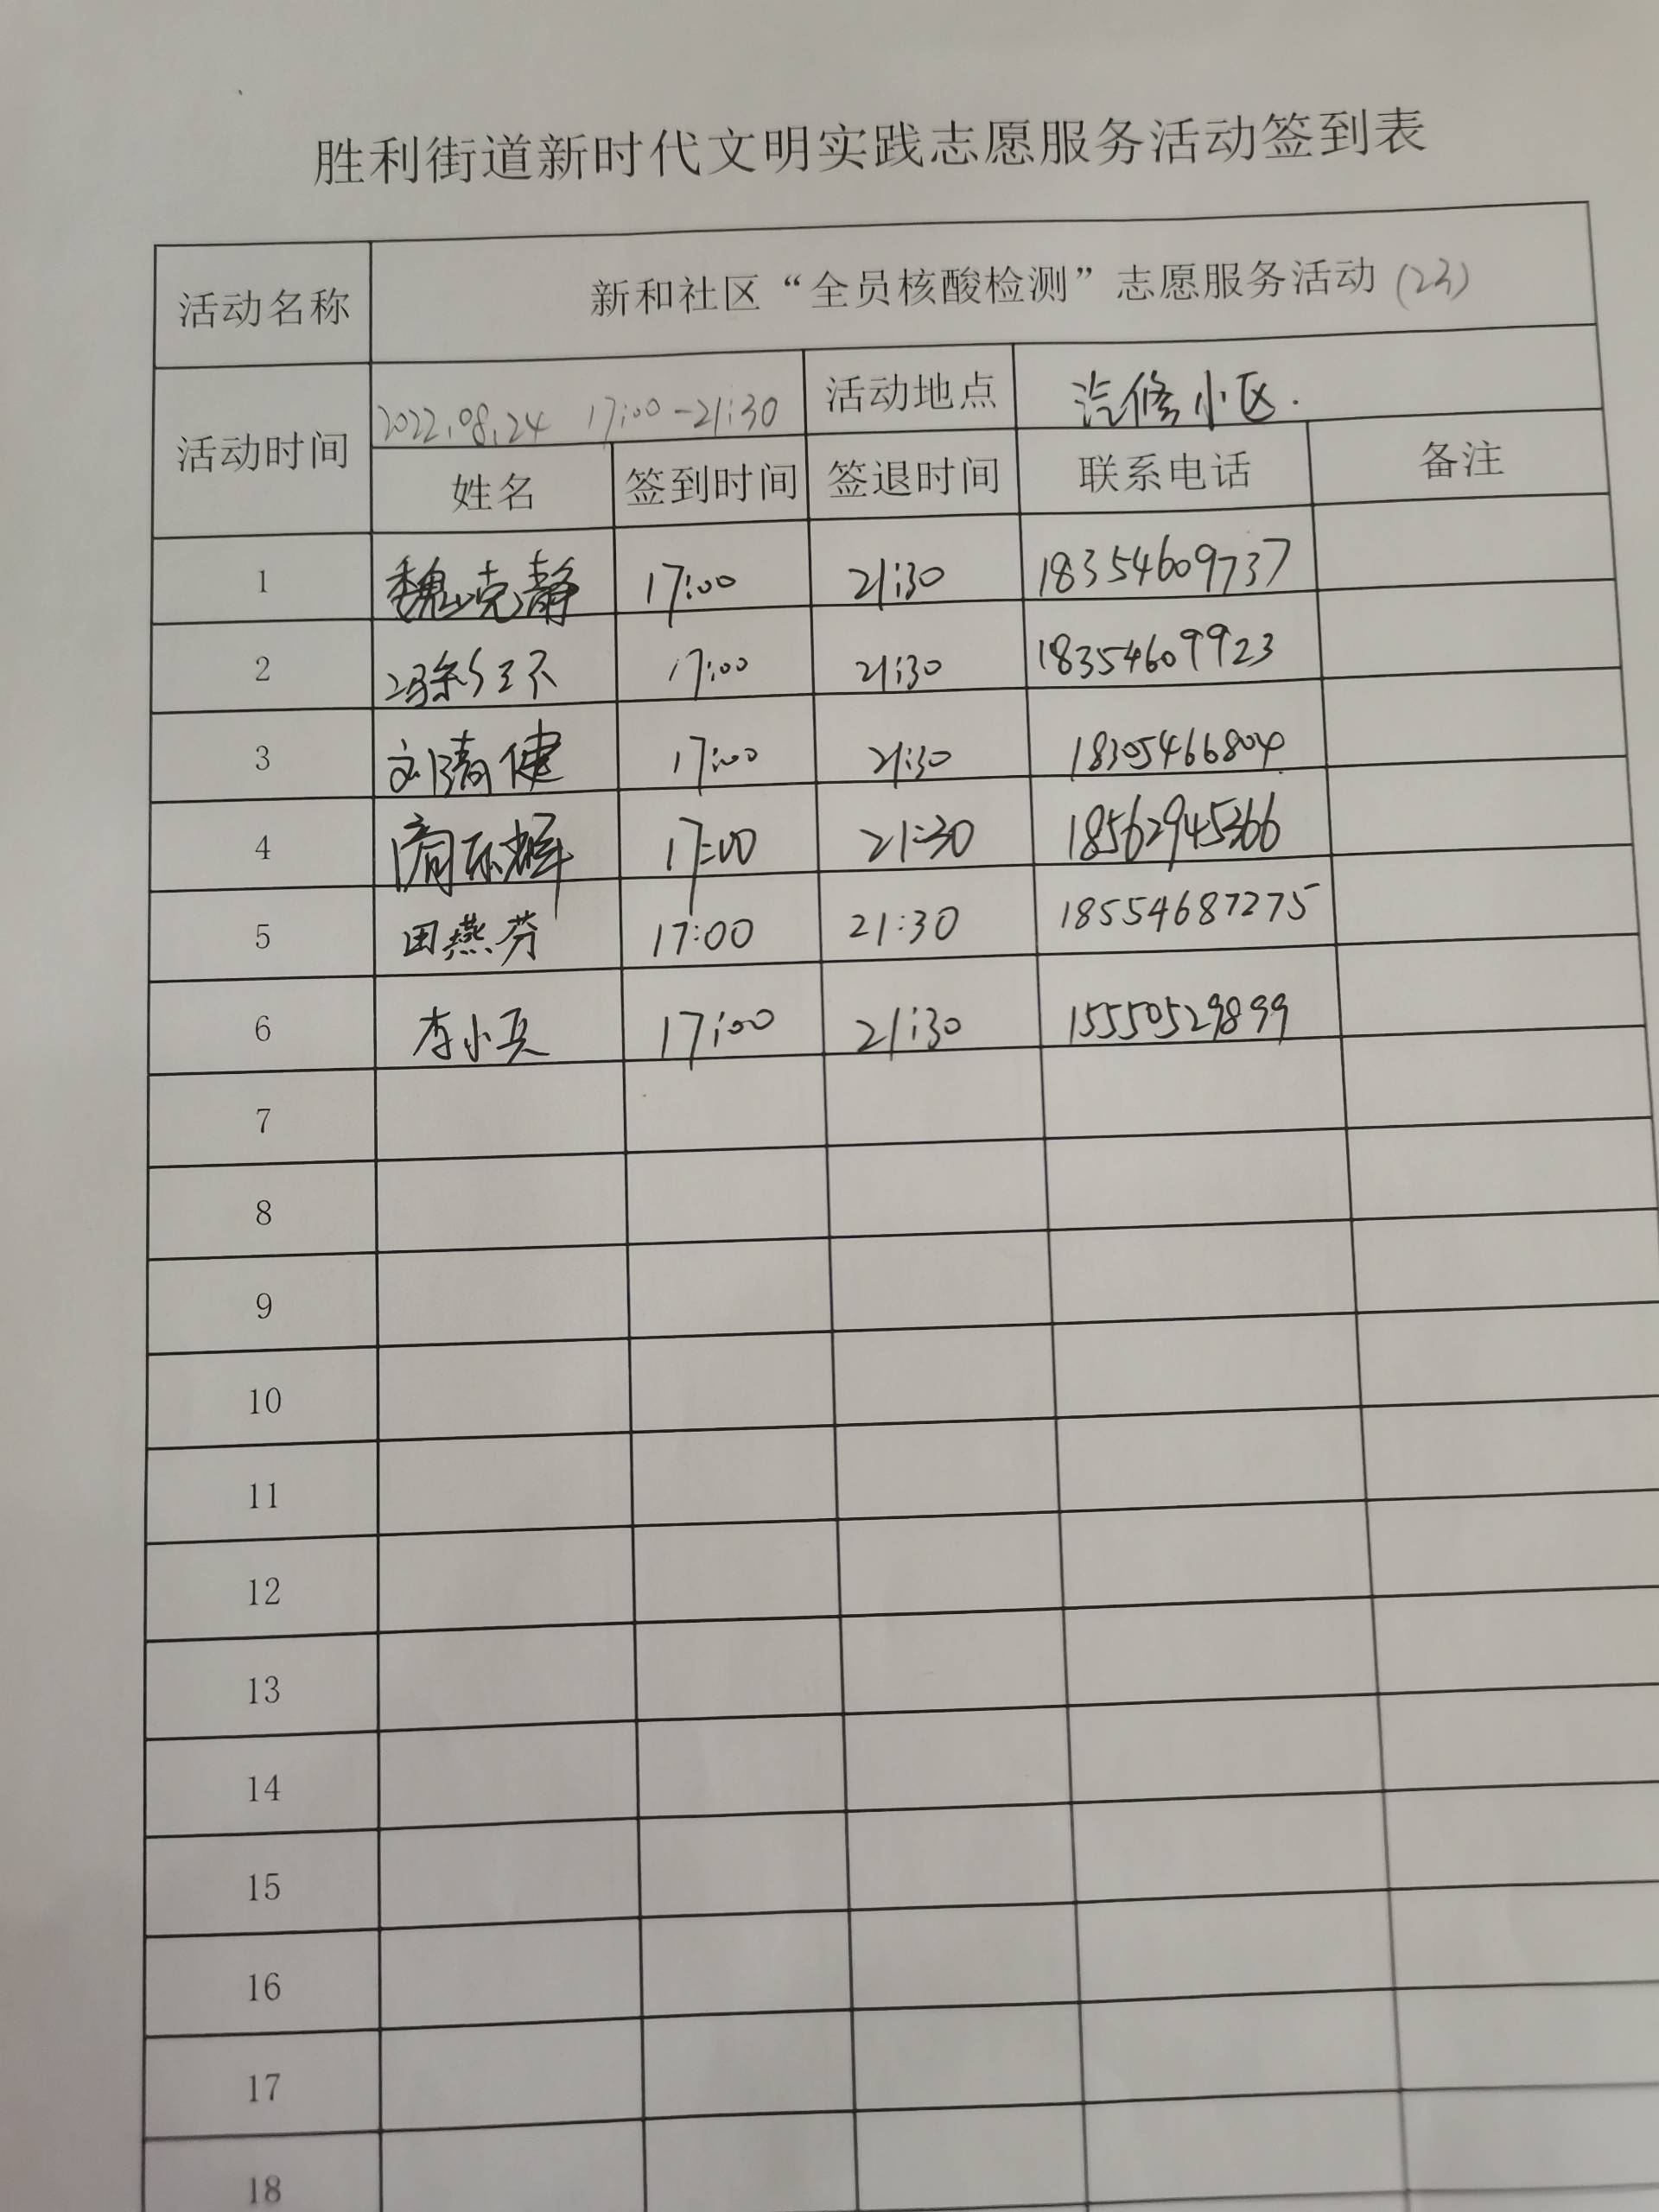 胜利街道新时代文明实践志愿服务活动签到表
活动名称 新和社区“全员核酸检测”志愿服务活动(23)
活动时间 2022.08.24 17:00-21:30 活动地点 汽修小区.
姓名 签到时间 签退时间 联系电话 备注
1 魏克静 17:00 21:30 18354609737
2 17:00 21:30 18354609923
3 刘清健 17:00 21:30 18305466804
4 17:00 21:30 18562945366
5 田燕芬 17:00 21:30 18554687275
6 李小兵 17:00 21:30 15550529899
7
8
9
10
11
12
13
14
15
16
17
18